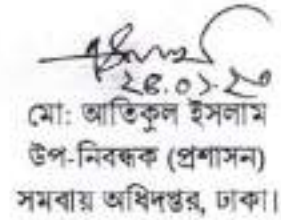 ২৫.০১.২৩
মো: আতিকুল ইসলাম
উপ-নিবন্ধক (প্রশাসন)
সমবায় অধিদপ্তর, ঢাকা।